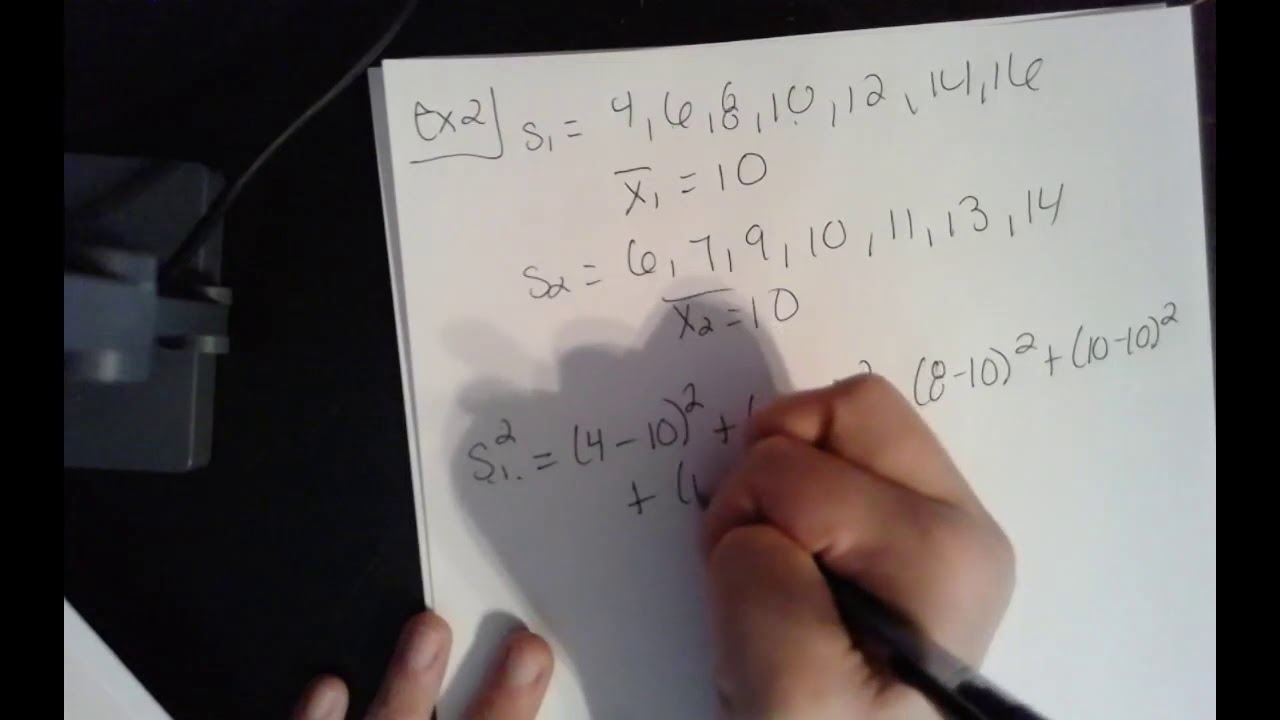 Ex2
S₁ = 4, 6, 8, 10, 12, 14, 16
x̅₁ = 10
S₂ = 6, 7, 9, 10, 11, 13, 14
x̅₂ = 10
S₁² = (4 - 10)² + ( ² (8-10)² + (10-10)²
+ (1